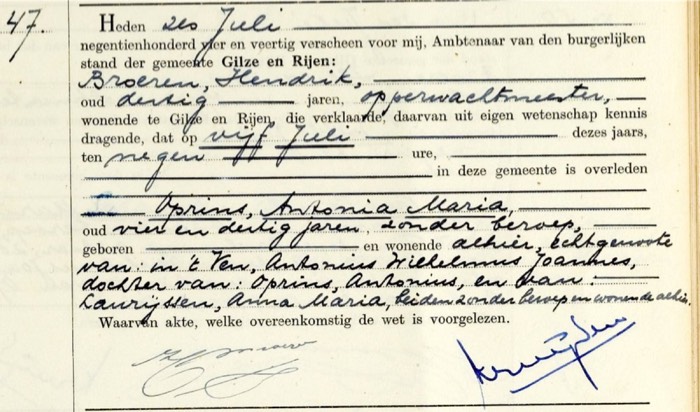 47.
Heden zes Juli
negentienhonderd vier en veertig verscheen voor mij, Ambtenaar van den burgerlijken
stand der gemeente Gilze en Rijen:
Broeren, Hendrik,
oud dertig jaren, opperwachtmeester,
wonende te Gilze en Rijen, die verklaarde, daarvan uit eigen wetenschap kennis
dragende, dat op vijf Juli dezes jaars,
ten negen ure,
in deze gemeente is overleden
Oprins, Antonia Maria,
oud vier en dertig jaren, zonder beroep,
geboren en wonende alhier, echtgenoote
van: in 't Ven, Antonius Wilhelmus Joannes,
dochter van: Oprins, Antonius, en van:
Laurijssen, Anna Maria, beiden zonder beroep en wonende alhier.
Waarvan akte, welke overeenkomstig de wet is voorgelezen.